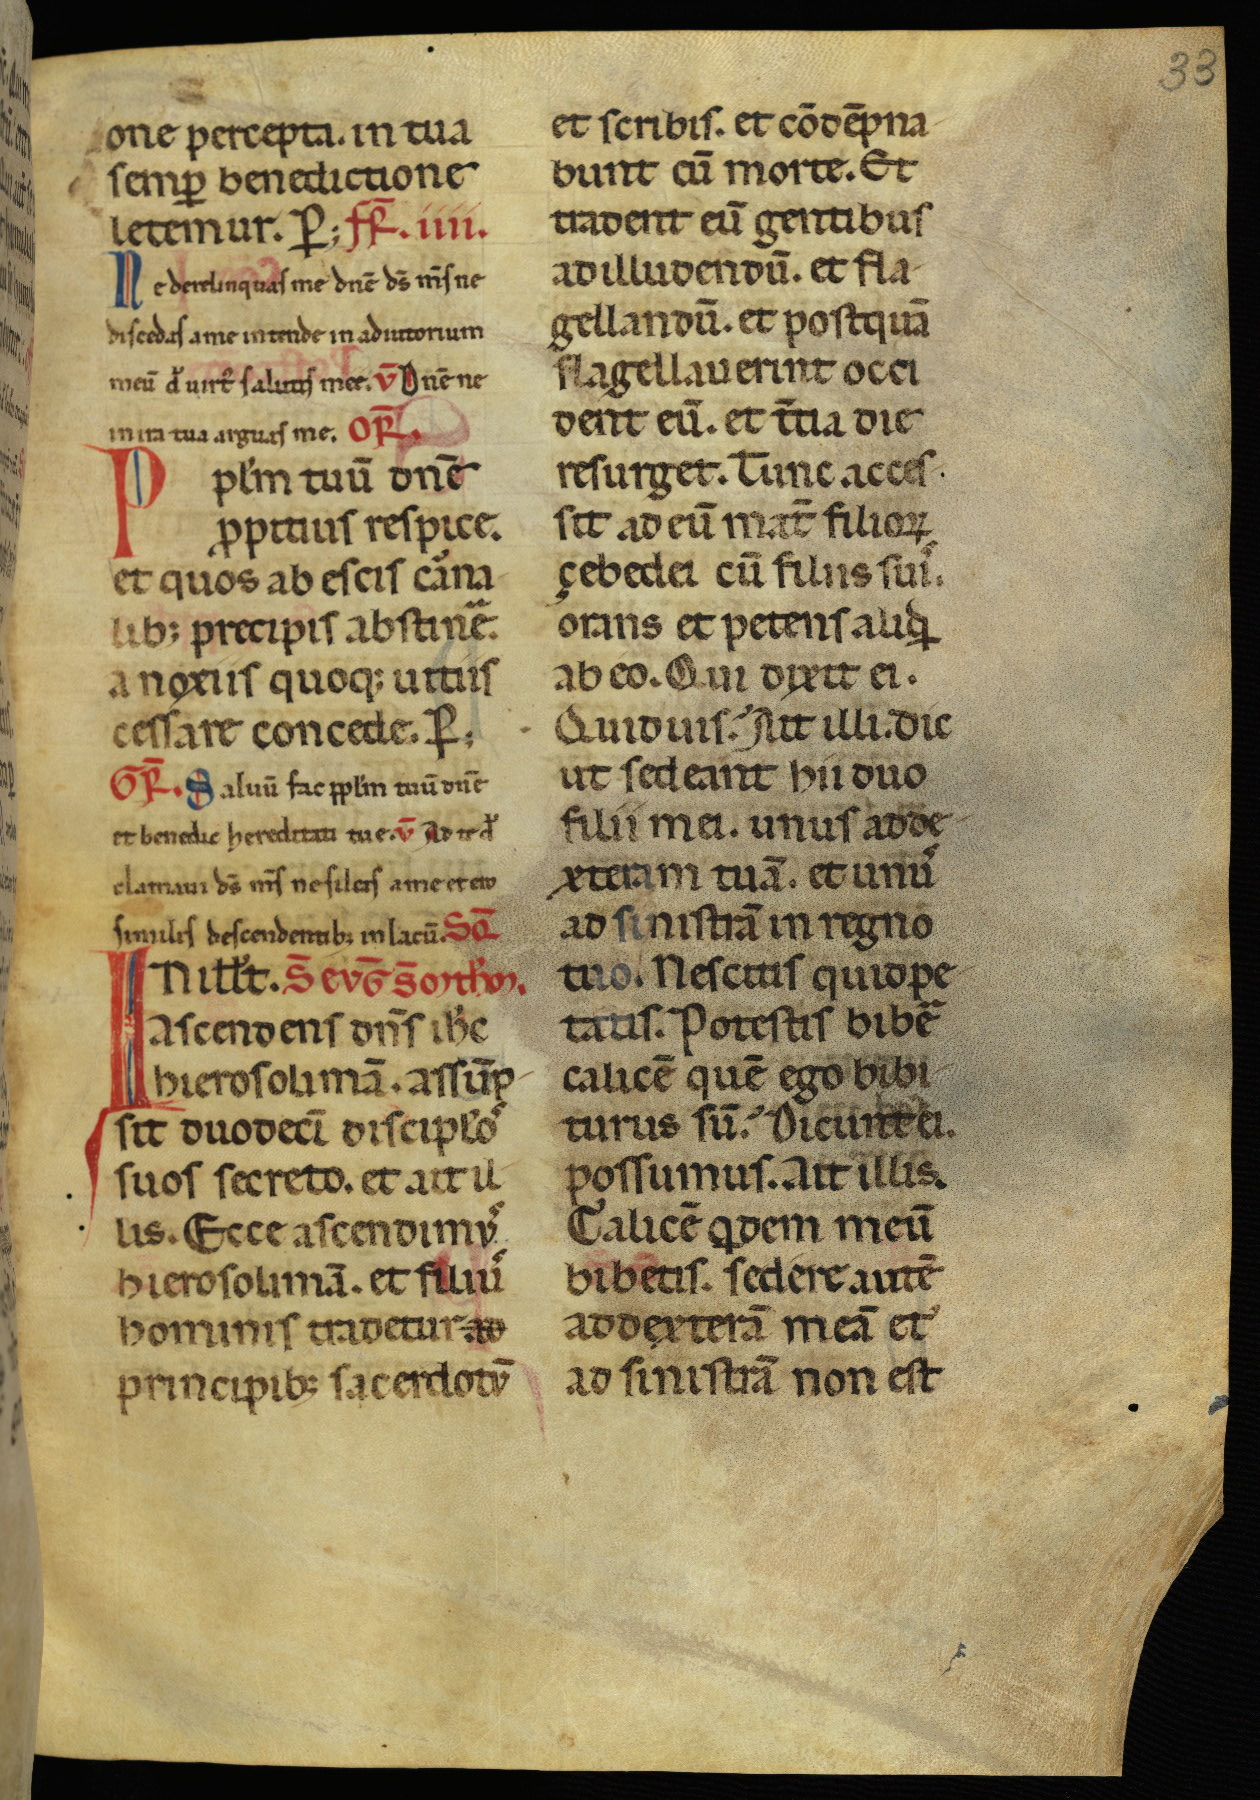 33
one percepta. in tua
semꝑ benedictione
letemur. P̱; fr̄. iiii.
Ne derelinquas me dn̄e ds̄ ms̄ ne
discedas a me intende in adiutorium
meū d̾ uirt̄ salutis mee. v̄ Dn̄e ne
in ira tua arguas me. OR̄.
Ppl̄m tuū dn̄e
ꝓpitius respice.
et quos ab escis car̾na
lib; precipis abstinēͣ.
a noxiis quoq; uitiis
cessare concede. P̱;
GR̄. Saluū fac ppl̄m tuū dn̄e
et benedic hereditati tue. v̄ Ad te d̾
clamaui ds̄ ms̄ ne sileas a me et ero
similis descendentib; in lacū. SQ̄
IN ill̄t.
Ascendens dn̄s ihc̄
hierosolimā. assūp
sit duodecī discipl̾oˢ
suos secreto. et ait il
lis. Ecce ascendimꝰ
hierosolimā. et filiuˢ
hominis tradetur ad
principib; sacerdotū
et scribis. et cōdēpna
bunt eū morte. Et
tradent eū gentibus
ad illudendū. et fla
gellandū. et postquā
flagellauerint occi
dent eū. et t̄tia die
resurget. Tunc acces
sit ad eū mat̄ filioꝝ
çebedei cū filiis suiˢ.
orans et petens aliqͩ
ab eo. Qui dixit ei.
Quid uis. Ait illi. dic
ut sedeant hii duo
filii mei. unus ad de
xteram tuā. et unuˢ
ad sinistrā in regno
tuo. Nescitis quid pe
tatis. Potestis bibēͤ
calicē quē ego bibi
turus sū. Dicunt ei.
possumus. Ait illis.
Calicē qͥdem meū
bibetis. sedere autē
ad dexterā meā et
ad sinistrā non est